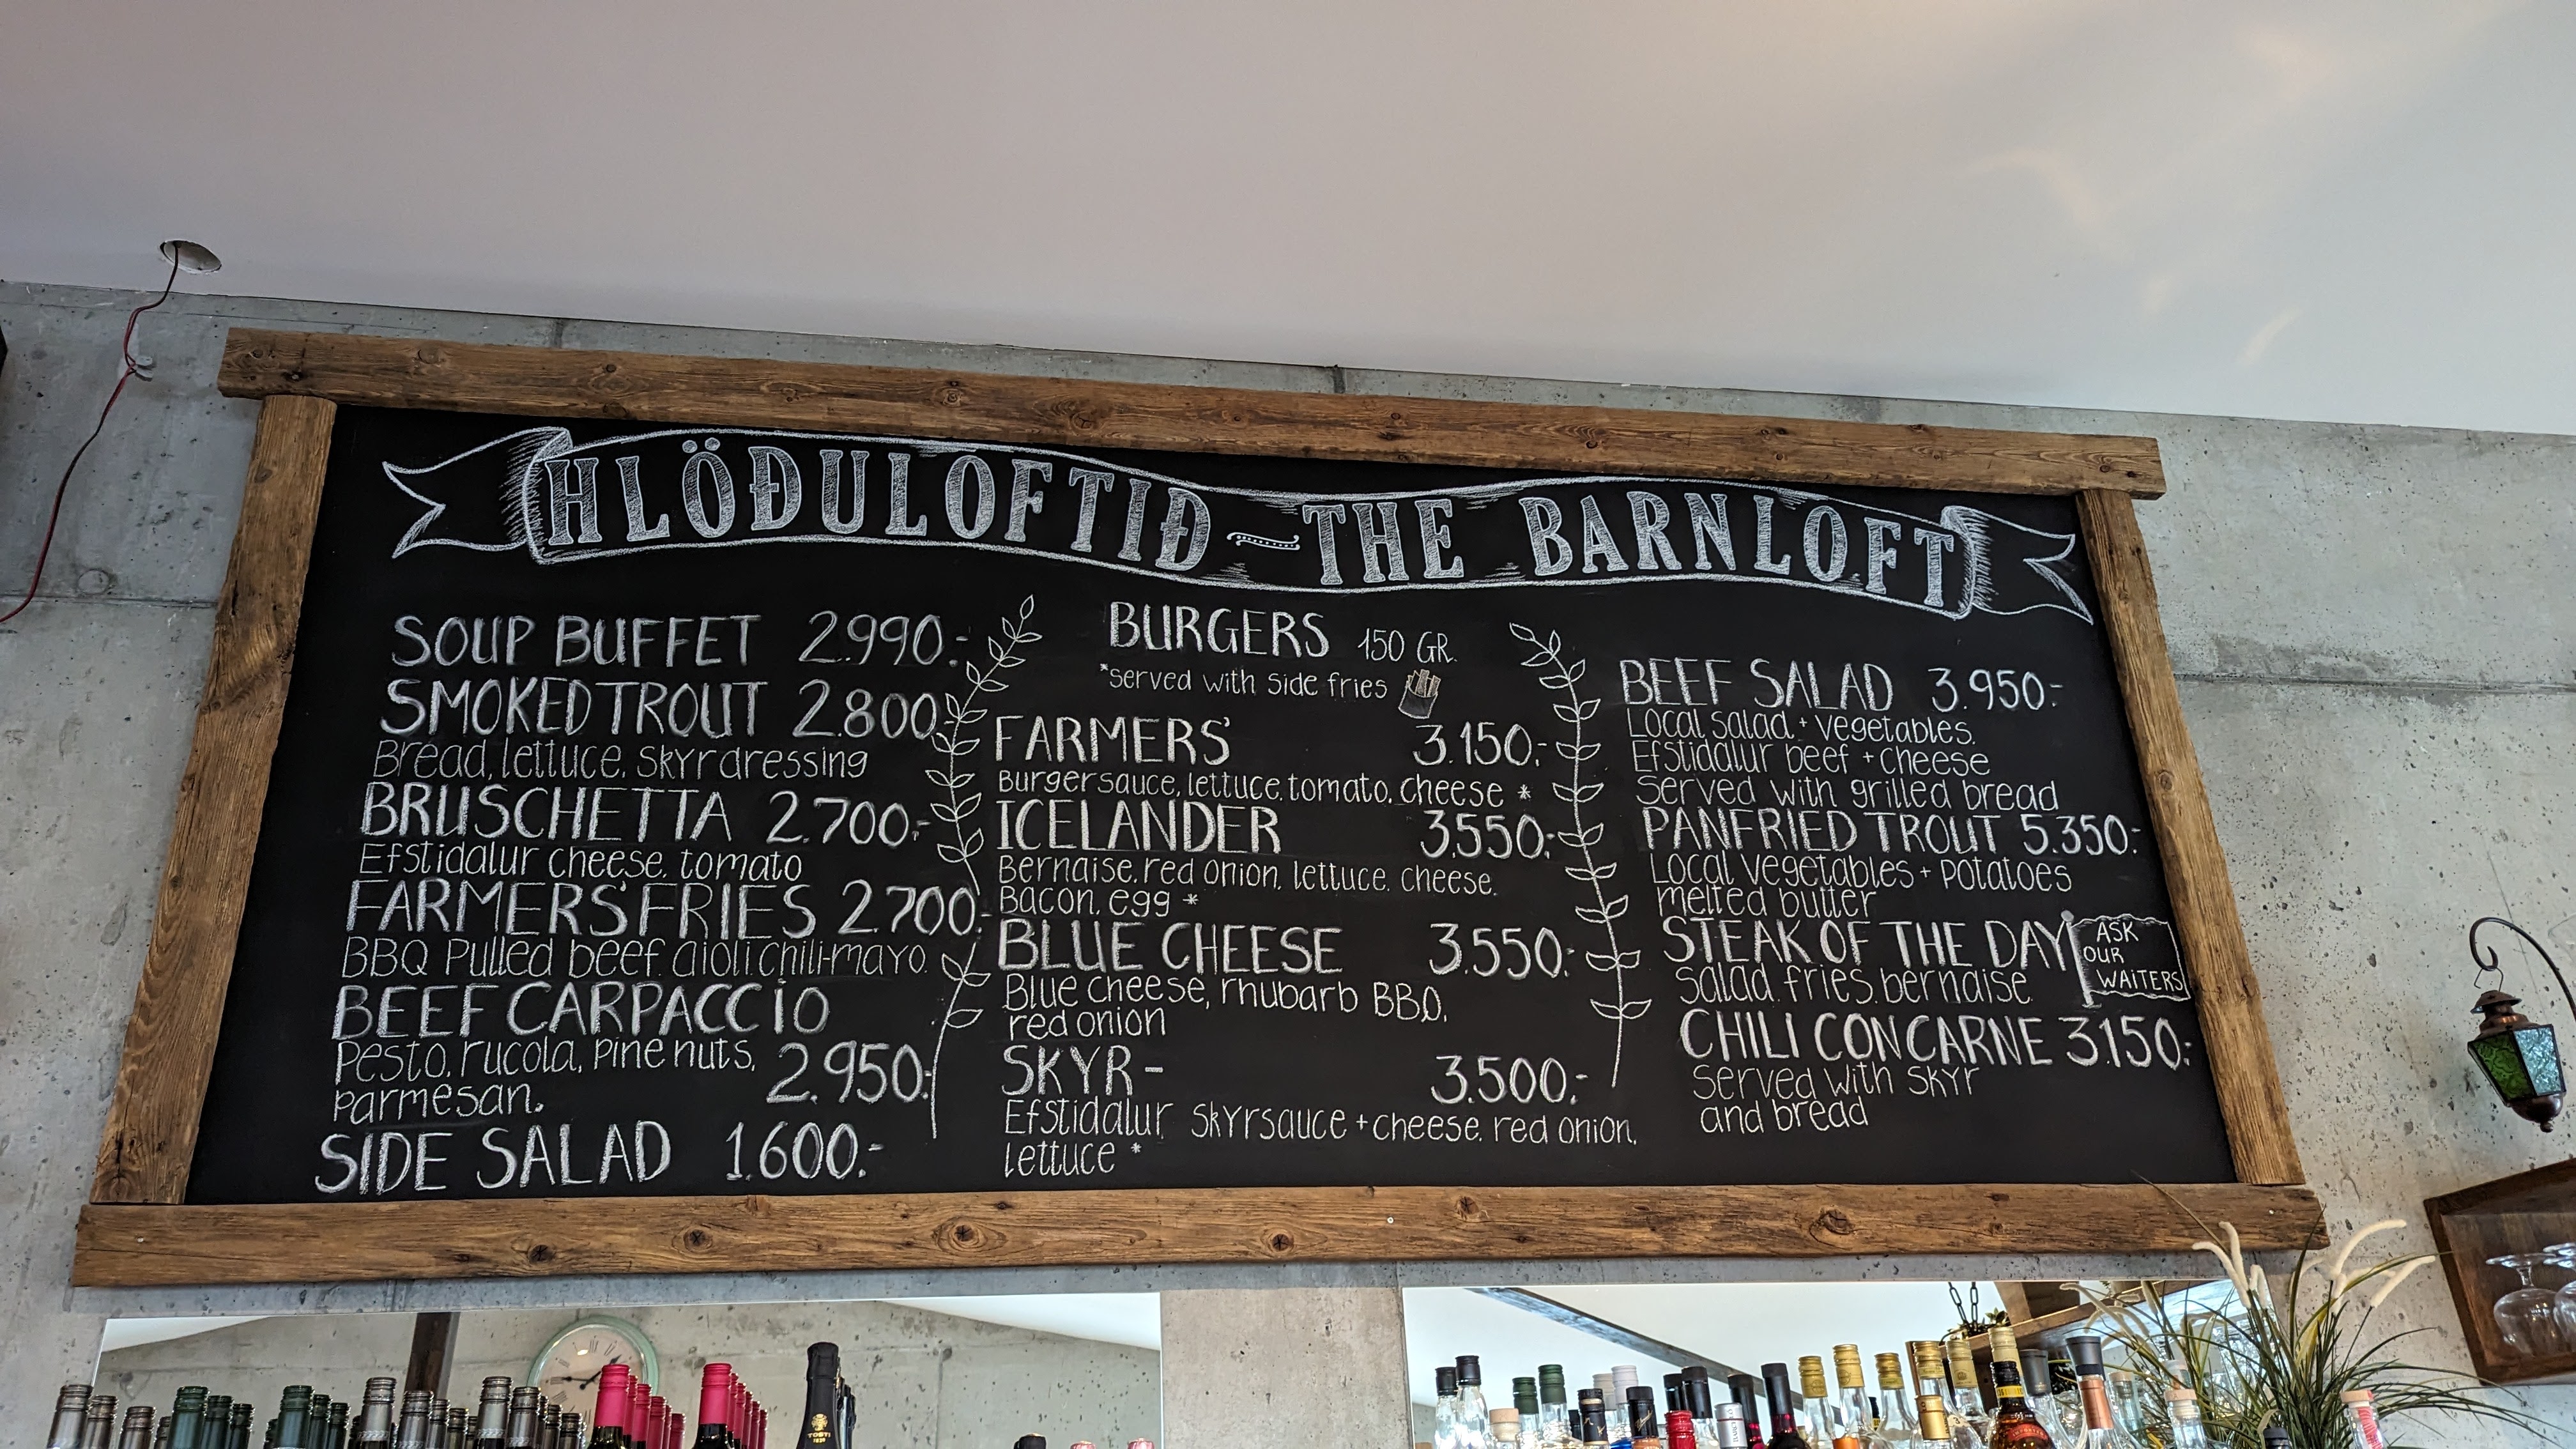 HLÖÐULOFTIÐ ~ THE BARNLOFT
SOUP BUFFET 2.990.-
SMOKED TROUT 2.800.-
Bread, lettuce, skyrdressing
BRUSCHETTA 2.700.-
Efstidalur cheese, tomato
FARMERS' FRIES 2.700.-
BBQ Pulled beef, aioli, chili-mayo.
BEEF CARPACCIO
Pesto, rucola, pine nuts, 2.950.-
parmesan.
SIDE SALAD 1.600.-
BURGERS 150 GR.
*served with side fries
FARMERS' 3.150.-
Burgersauce, lettuce, tomato, cheese *
ICELANDER 3.550.-
Bernaise, red onion, lettuce, cheese,
Bacon, egg *
BLUE CHEESE 3.550.-
Blue cheese, rhubarb BBQ,
red onion
SKYR- 3.500.-
Efstidalur skyrsauce + cheese, red onion,
lettuce *
BEEF SALAD 3.950.-
Local salad + vegetables.
Efstidalur beef + cheese
Served with grilled bread
PANFRIED TROUT 5.350.-
Local vegetables + potatoes
melted butter
STEAK OF THE DAY
salad, fries, bernaise
ASK
OUR
WAITERS
CHILI CON CARNE 3.150.-
Served with skyr
and bread
TOSTI